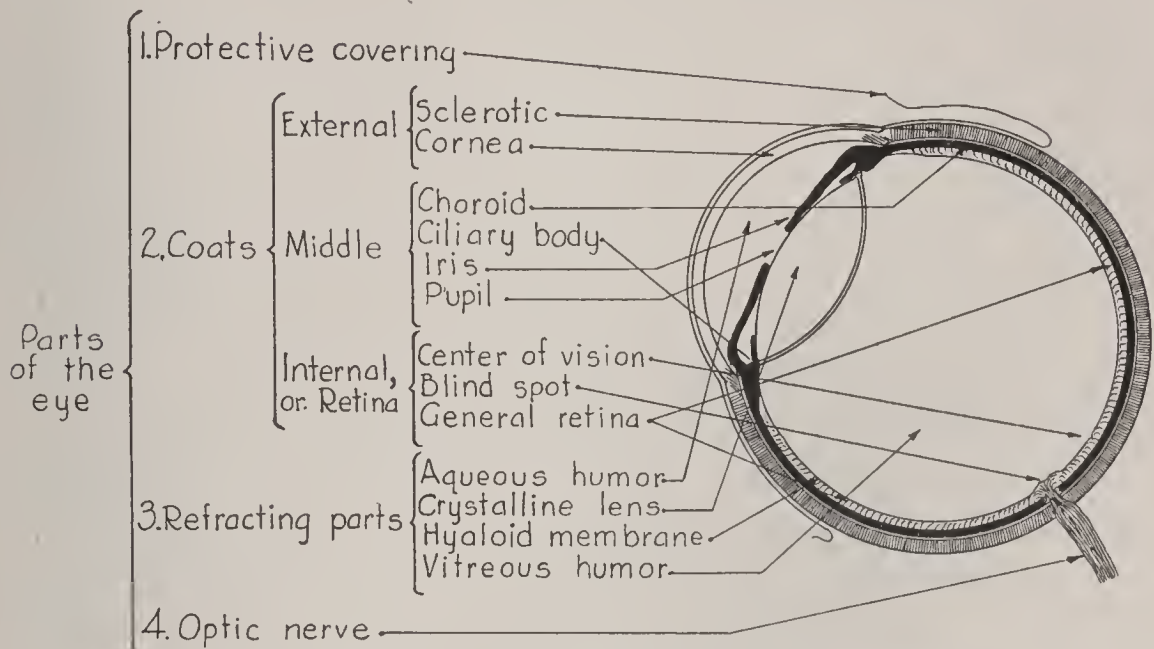 Parts
of the
eye
1. Protective covering
2. Coats
External
Sclerotic
Cornea
Middle
Choroid
Ciliary body
Iris
Pupil
Internal,
or. Retina
Center of vision
Blind spot
General retina
3. Refracting parts
Aqueous humor
Crystalline lens
Hyaloid membrane
Vitreous humor
4. Optic nerve